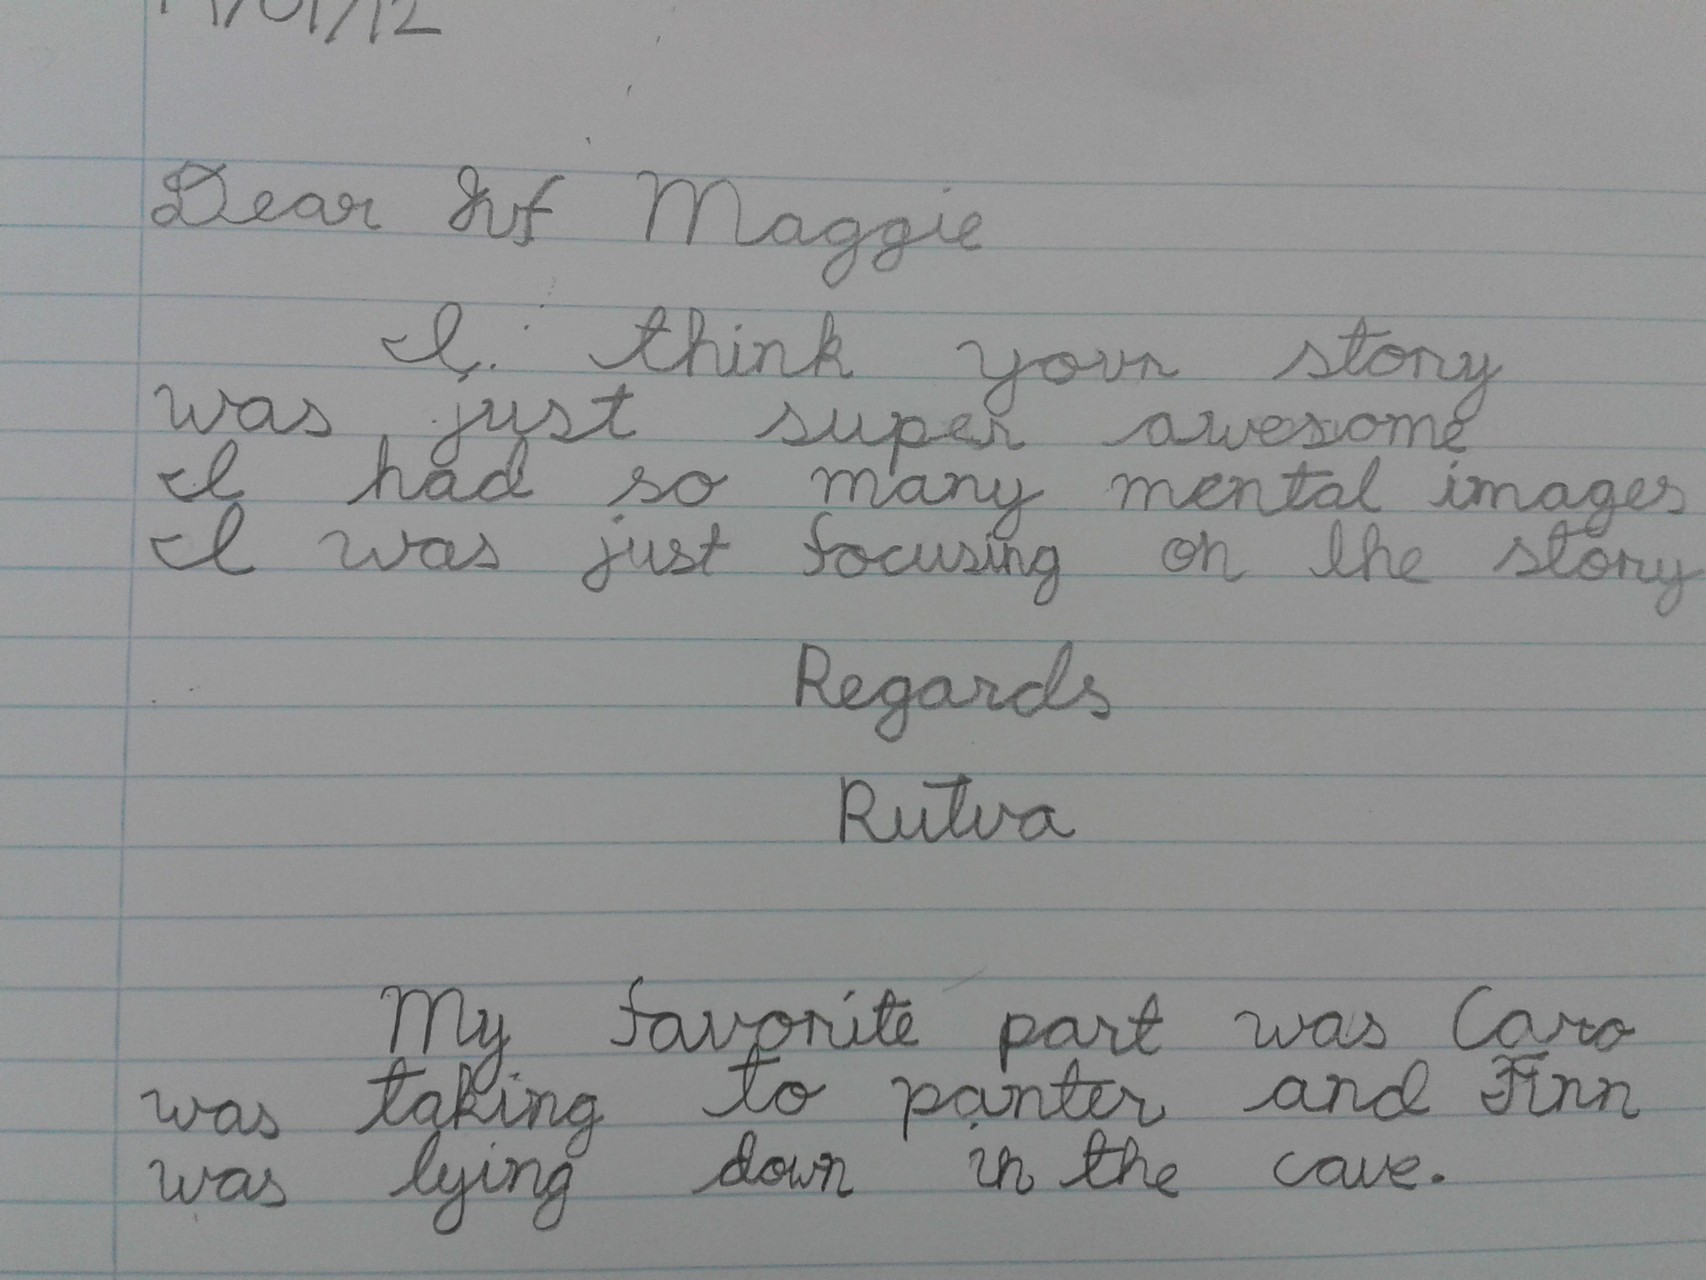 /01/12
Dear Maggie
I think your story
was just super awesome
I had so many mental images
I was just focusing on the story
Regards
Rutva
My favorite part was Caro
was taking to panter and Finn
was lying down in the cave.